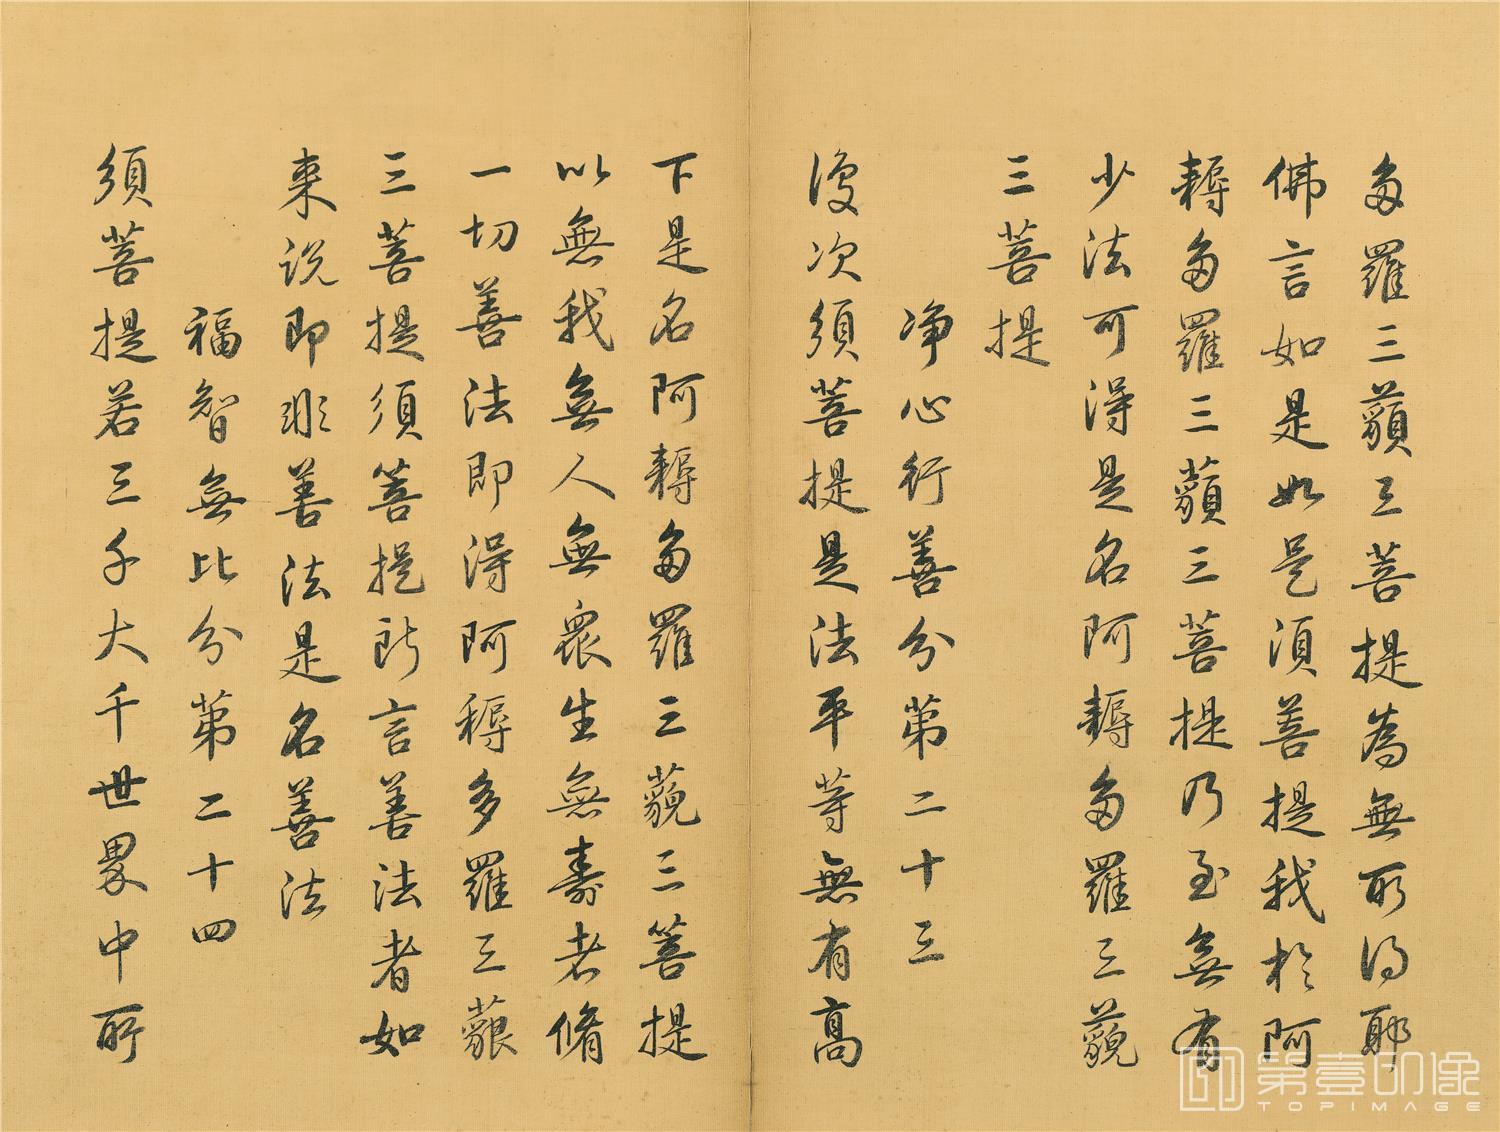 多羅三藐三菩提為無所得耶
佛言如是如是須菩提我於阿
耨多羅三藐三菩提乃至無有
少法可得是名阿耨多羅三藐
三菩提
淨心行善分第二十三
復次須菩提是法平等無有高
下是名阿耨多羅三藐三菩提
以無我無人無眾生無壽者脩
一切善法即得阿耨多羅三藐
三菩提須菩提所言善法者如
来說即非善法是名善法
福智無比分第二十四
須菩提若三千大千世界中所
第壹印像
TOPIMAGE